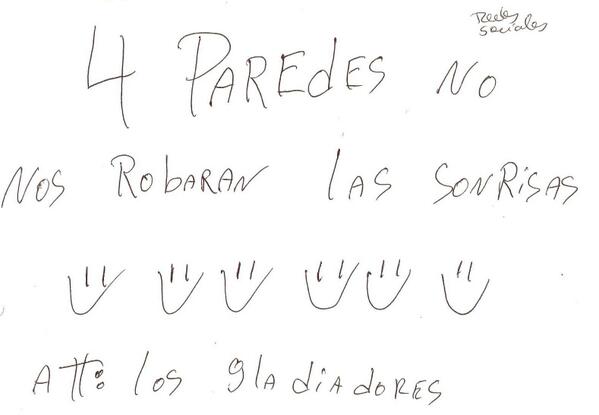 Redes
sociales
4 PAREdES NO
NOS RObARAN lAS SONRiSAS
Att: lOS glAdiAdORES